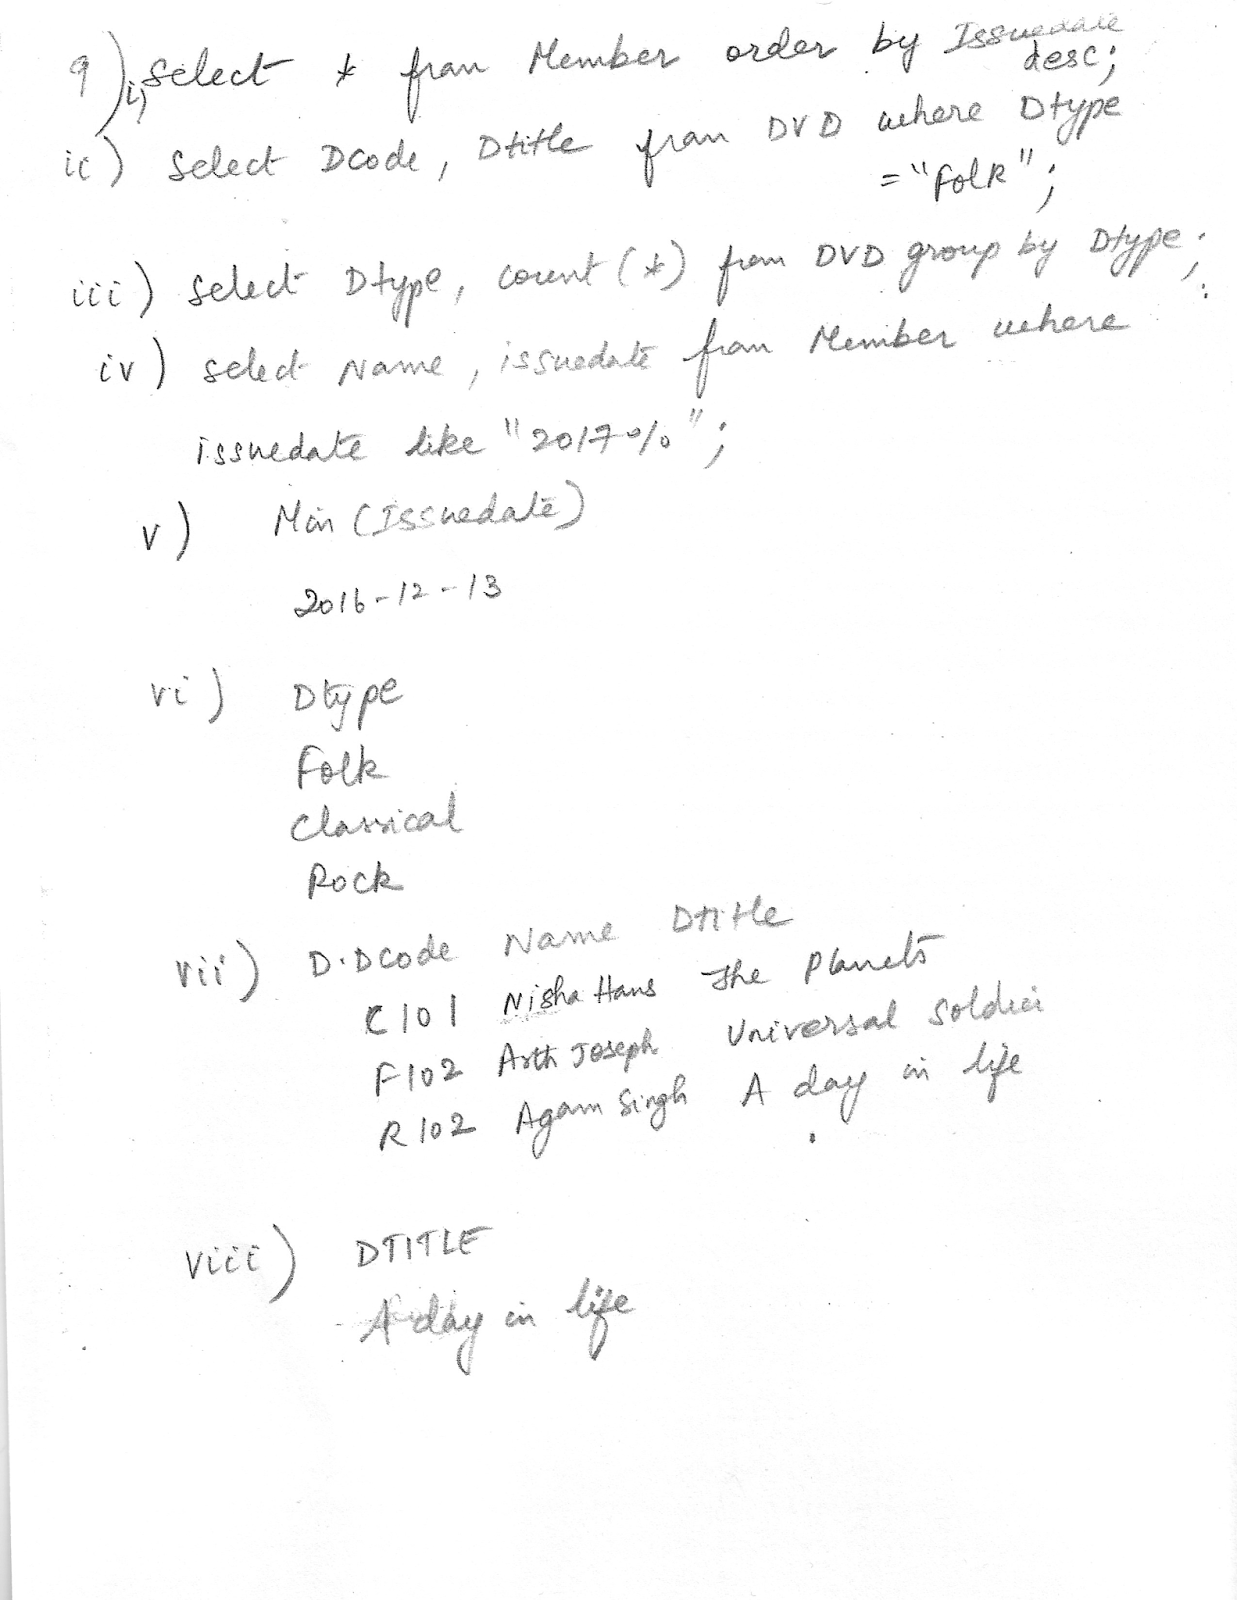 9) i) Select * from Member order by Issuedate
desc;
ii) Select Dcode, Dtitle from DVD where Dtype
= "Folk";
iii) Select Dtype, count (*) from DVD group by Dtype;
iv) select Name, issuedate from Member where
issuedate like "2017%";
v) Min (Issuedate)
2016-12-13
vi) Dtype
Folk
Classical
Rock
vii) D.Dcode Name Dtitle
C101 Nisha Hans The Planets
F102 Arth Joseph Universal Soldier
R102 Agam Singh A day in life
viii) DTITLE
A day in life